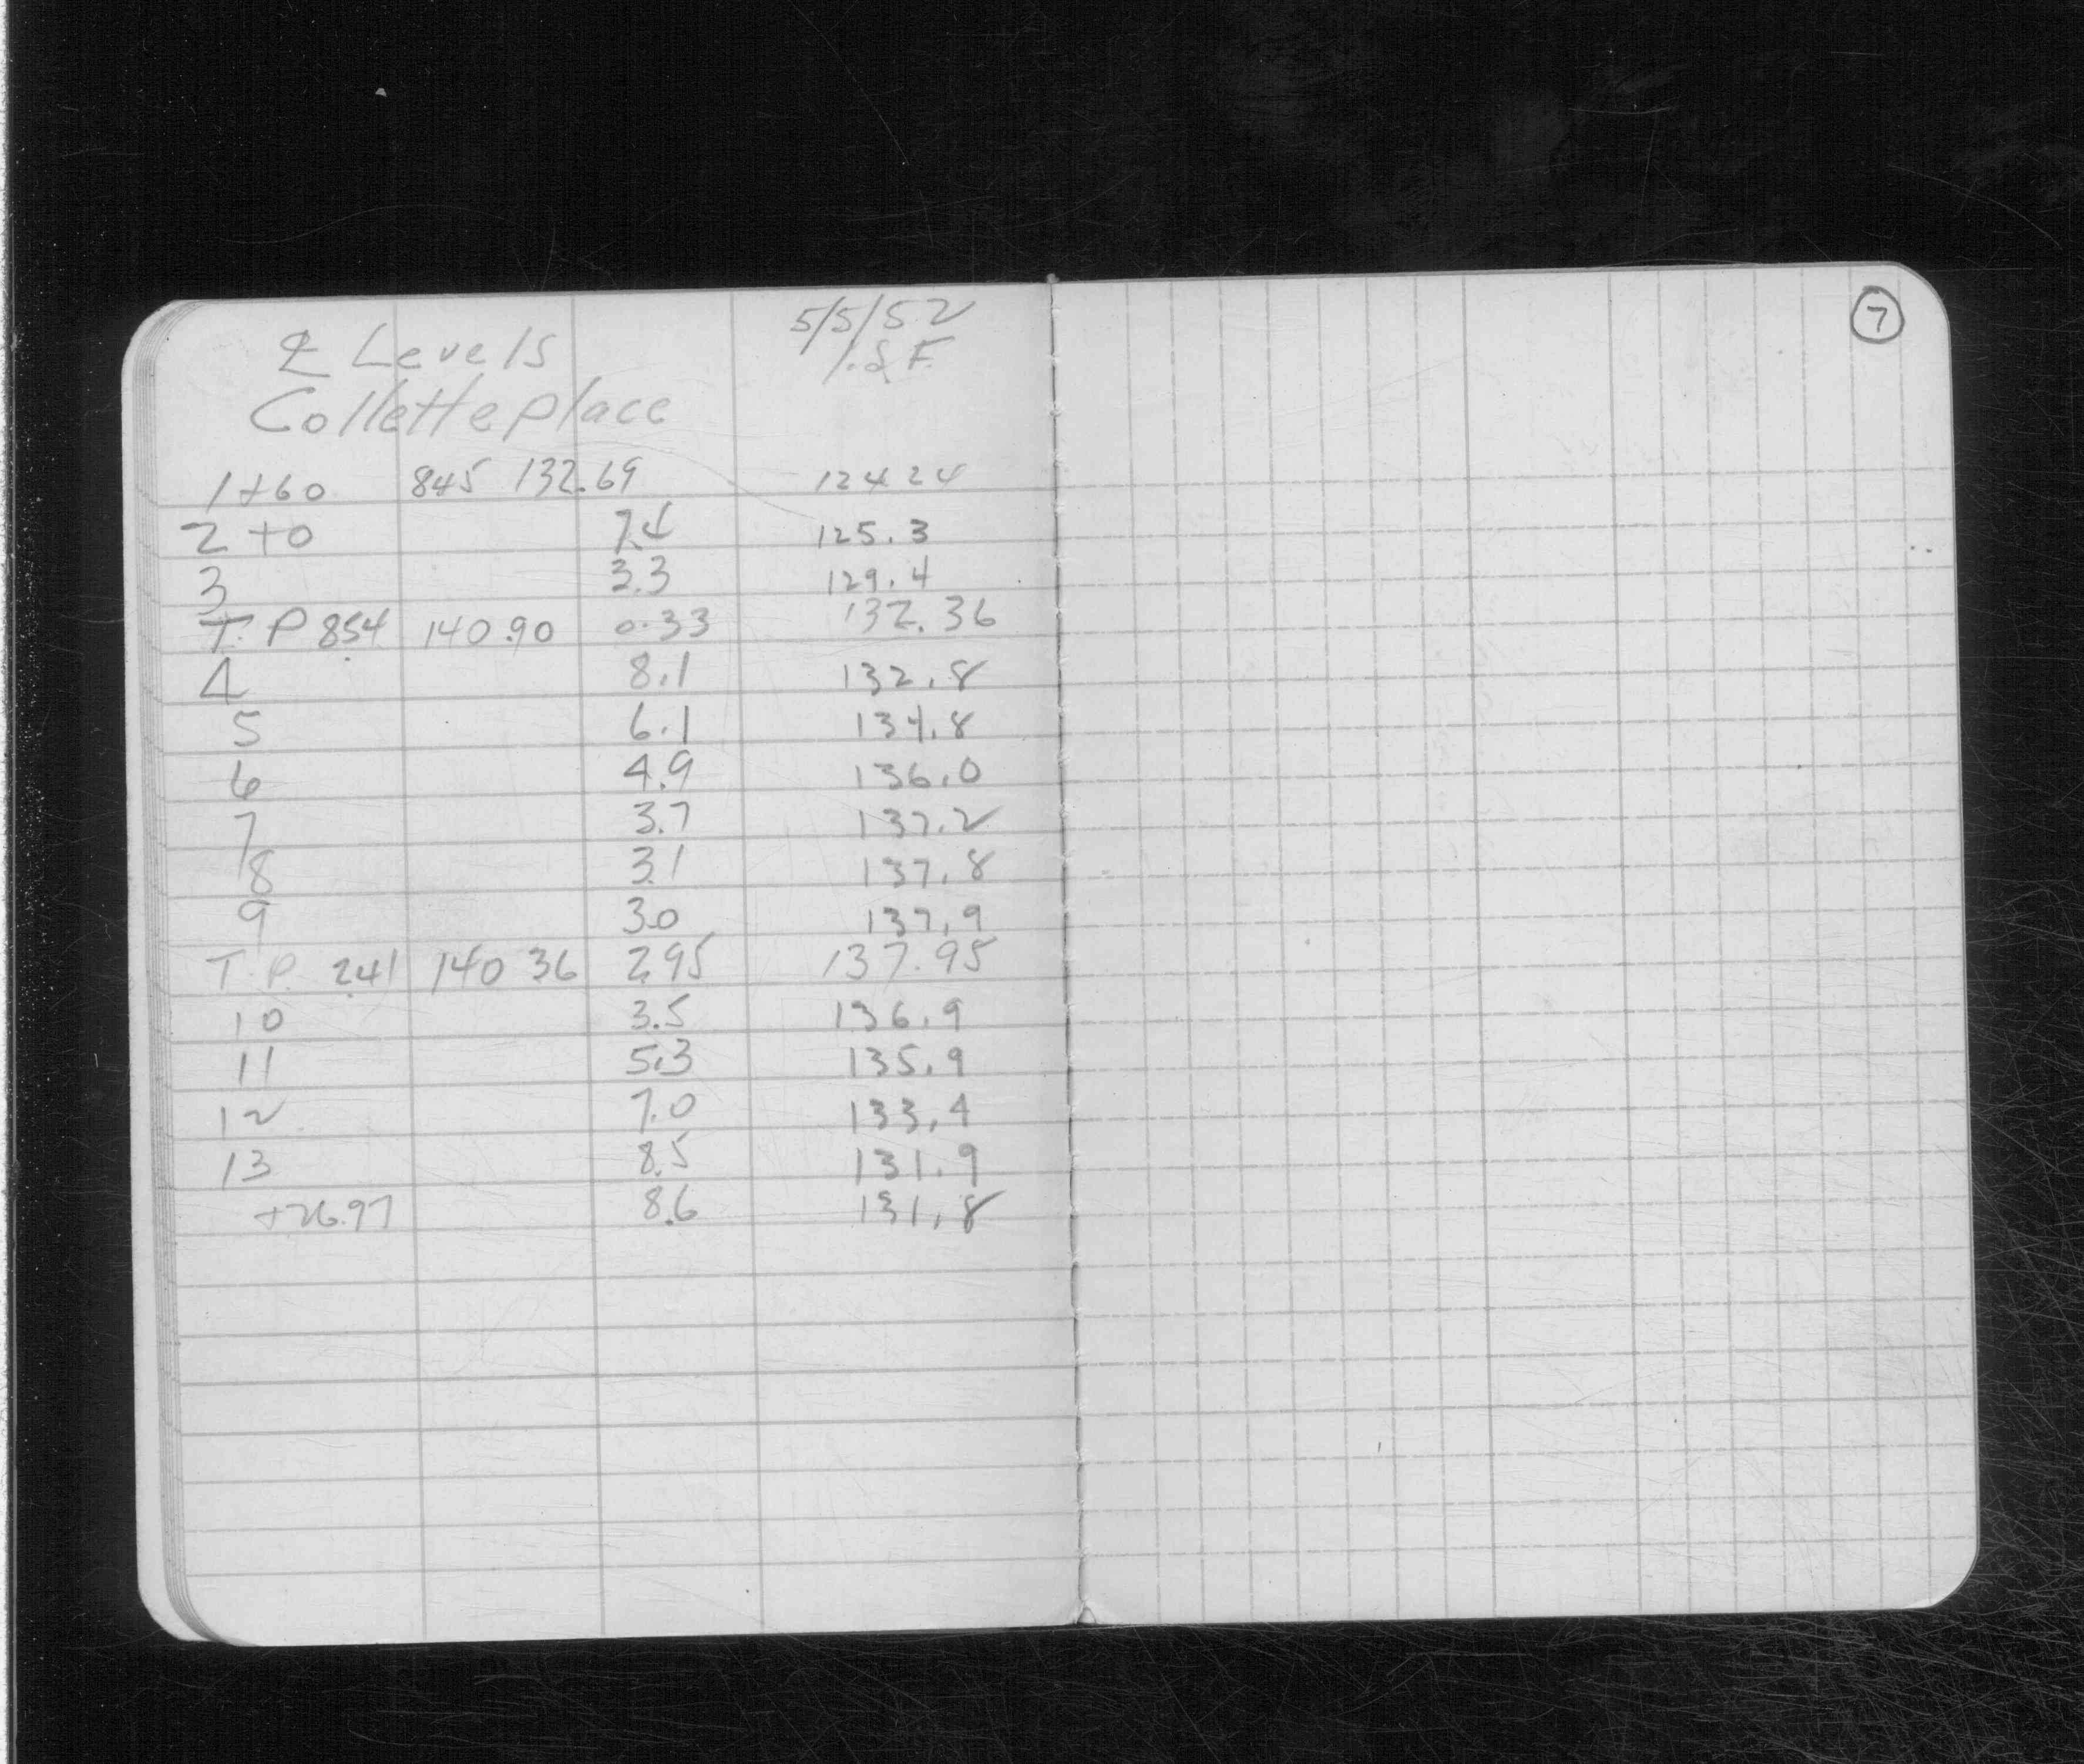 ℄ Levels 5/5/52
I.S.F.
Collette place
1+60 845 132.69 124 24
2 +0 7.4 125.3
3 3.3 129.4
T.P 854 140.90 0.33 132.36
4 8.1 132.8
5 6.1 134.8
6 4.9 136.0
7 3.7 137.2
8 3.1 137.8
9 3.0 137.9
T.P. 2.41 140 36 2.95 137.95
10 3.5 136.9
11 5.3 135.9
12 7.0 133.4
13 8.5 131.9
+26.97 8.6 131.8
7